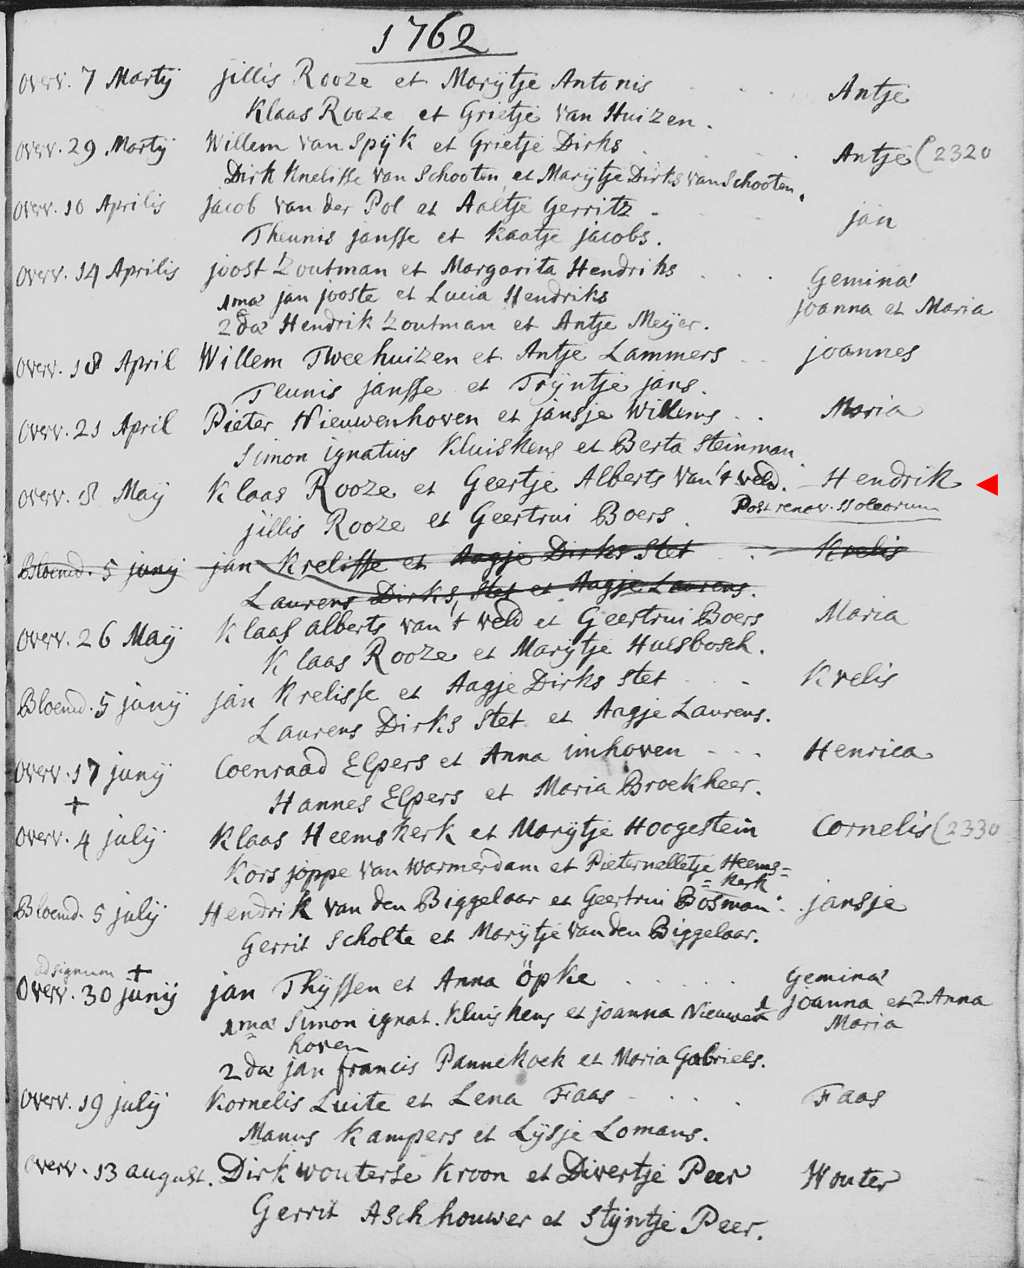 1762
Overv. 7 Martij jillis Rooze et Marijtje Antonis Antje
Klaas Rooze et Grietje van Huizen.
Overv. 29 Martij Willem van Spijk et Grietje Dirks Antje (2320
Dirk Knelisse van Schooten et Marijtje Dirks van Schooten.
Overv. 10 Aprilis jacob van der Pol et Aaltje Gerritz jan
Theunis jansse et Kaatje jacobs.
Overv. 14 Aprilis joost Zoutman et Margarita Hendriks Gemina
1ma jan jooste et Lucia Hendriks joanna et Maria
2da Hendrik Zoutman et Antje Meijer.
Overv. 18 April Willem Tweehuizen et Antje Lammers joannes
Teunis jansse et Trijntje jans.
Overv. 21 April Pieter Nieuwenhoven et jansje Willems Maria
Simon ignatius Kluiskens et Berta Steinman.
Overv. 8 Maij Klaas Rooze et Geertje Alberts van't veld. Hendrik
jillis Rooze et Geertrui Boers. Post renov. Soleorum
Bloemd. 5 junij jan Krelisse et Aagje Dirks Stet Krelis
Laurens Dirks Stet et Aagje Laurens.
Overv. 26 Maij Klaas alberts van't veld et Geertrui Boers Maria
Klaas Rooze et Marijtje Hulsbosch.
Bloemd. 5 junij jan Krelisse et Aagje Dirks Stet Krelis
Laurens Dirks Stet et Aagje Laurens.
Overv. 17 junij Coenraad Elpers et Anna imhoven Henrica
Hannes Elpers et Maria Broekheer.
+
Overv. 4 julij Klaas Heemskerk et Marijtje Hoogestein Cornelis (2330
Kors joppe van Warmerdam et Pieternelletje Heems=
=kerk
Bloemd. 5 julij Hendrik van den Biggelaar et Geertrui Bosman. jansje
Gerrit Scholte et Marijtje van den Biggelaar.
ad signum +
Overv. 30 junij jan Thijssen et Anna öpke Gemina
1ma Simon ignat. Kluiskens et joanna Nieuwen 1 joanna et 2 Anna
hoven Maria
2da jan francis Pannekoek et Maria Gabriels.
Overv. 19 julij Kornelis Luite et Lena Faas Faas
Manus Kampers et Lijsje Lomans.
Overv. 13 august. Dirk wouterse Kroon et Divertje Peer Wouter
Gerrit Aschhouwer et Stijntje Peer.